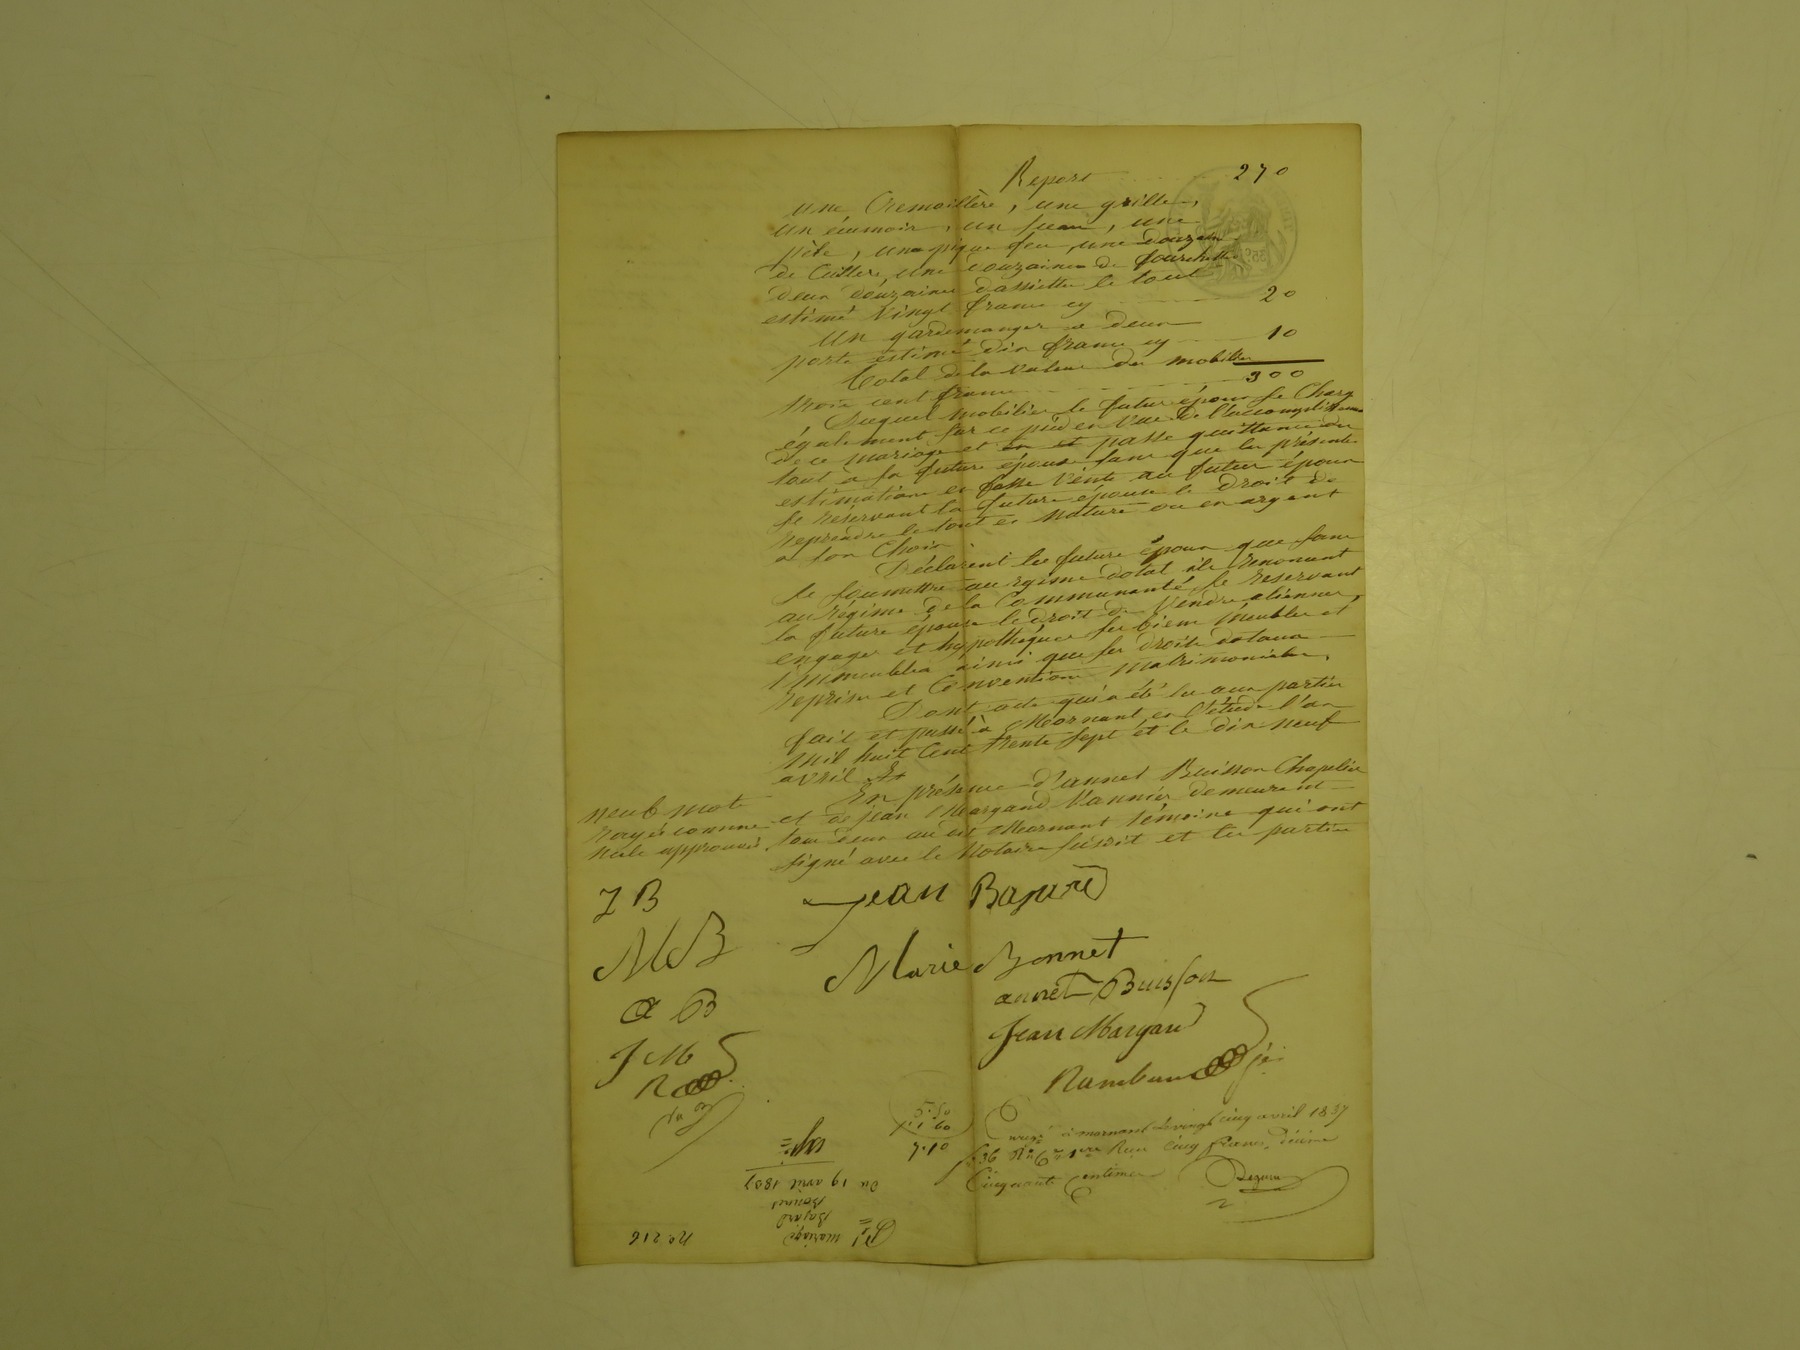 Report 270
une Cremaillère, une grille,
un écumoir, un seau, une
pèle, une pique feu, une douzaine
de Cuillere, une douzaine de fourchette
deux douzaine dassiette le tout
estimé Vingt franc cy 20
Un gardemanger a deux
porte estimé dix franc cy 10
Total de la valeur du mobilier
trois cent franc 300
Duquel mobilier le futur époux se Charge
également sur ce pied en vue de l'accomplissement
de ce mariage et en et passe quittance du
tout à sa future épouse sans que la présente
estimation en fasse Vente au futur époux
se réservant la future épouse le droit de
reprendre le tout en nature ou en argent
a son Choix
Déclarent les future époux que sans
se soumettre au régime dotal ils renoncent
au régime de la Communauté, se réservant
la future épouse le droit de Vendre aliener,
engager et hypothéquer ses biens meubles et
immeubles ainsi que ses droits dotaux
reprise et Convention matrimoniales,
Dont acte qui a été lu aux parties
fait et passé à Mornant en l'étude l'an
mil huit Cent trente sept et le dix neuf
avril
En présence d'annet Buisson Chapelier
et de jean Margand Vannier demeurant
tous deux audit Mornant témoins qui ont
signé avec le Notaire susdit et les parties
neuf mots
rayés comme
nuls approuvés
J B
Jean Bajard
M B
Marie Bonnet
a B
annet Buisson
J M
Jean Margand
R
Enregé à mornant le vingt cinq avril 1837
Reçu Cinq francs, décime
Cinquante Centimes
5.50
1.60
7.10
N° 216
mariage
Bajard
Bonnet
Du 19 avril 1837